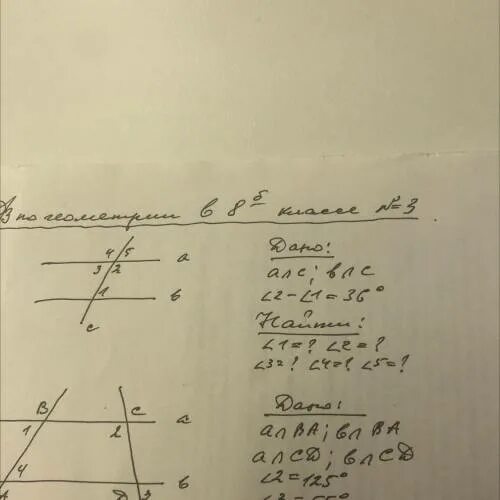 по геометрии в 8б классе №3
4 5
3 2
a
1
b
c
Дано:
a∩c; b∩c
∠2-∠1=36°
Найти:
∠1=? ∠2=?
∠3=? ∠4=? ∠5=?
B
C
a
1
2
4
b
A
D
3
Дано:
a∩BA; b∩BA
a∩CD; b∩CD
∠2=125°
∠3=55°